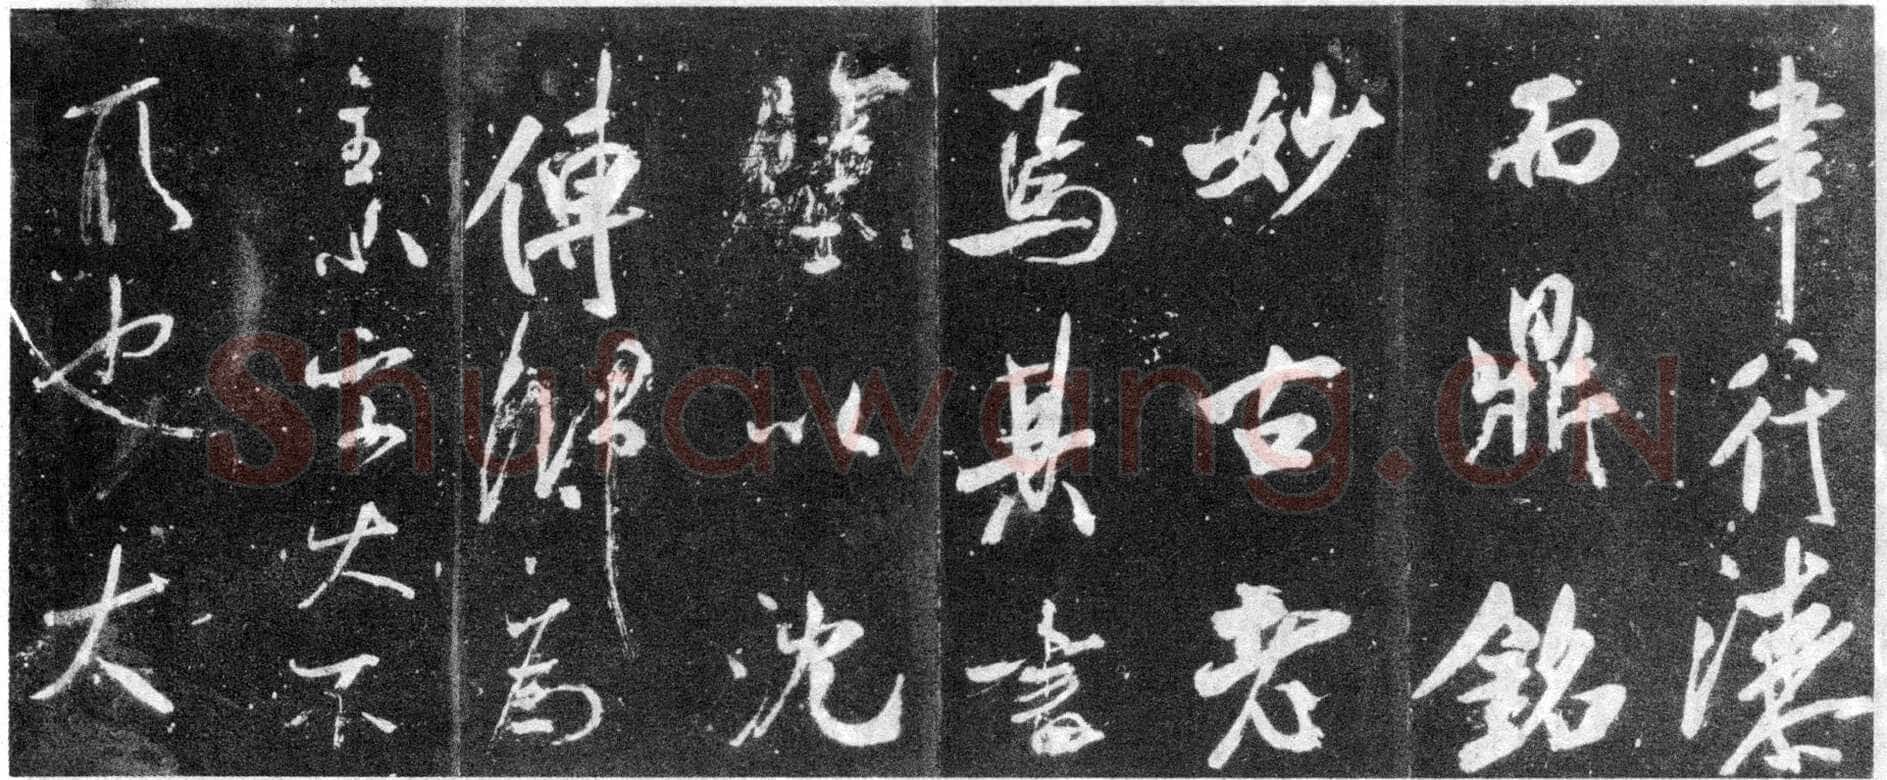 聿行漆
而鼎銘
妙古老
焉其書
壁以沈
傳師為
主小字大不
取也大
Shufawang.CN